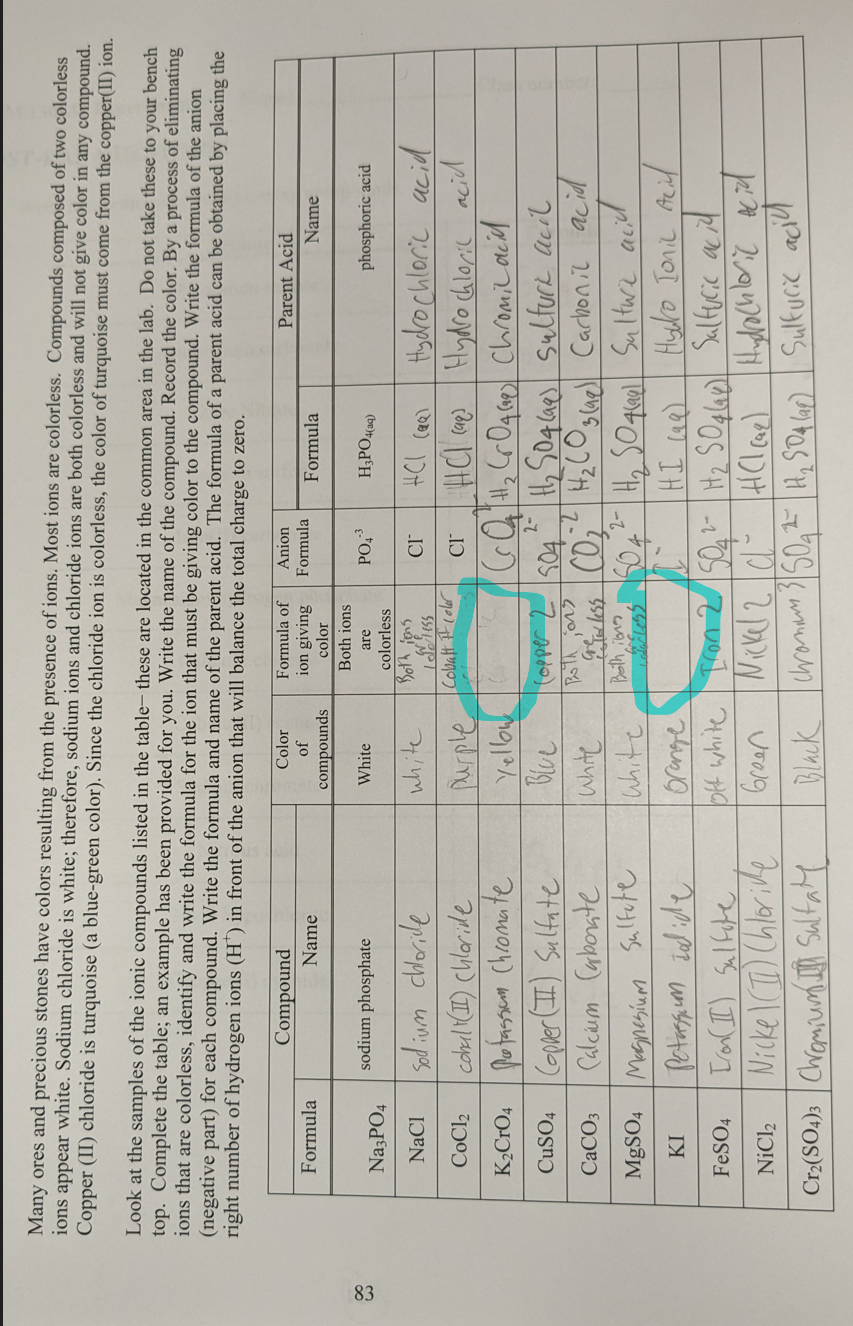 Many ores and precious stones have colors resulting from the presence of ions. Most ions are colorless. Compounds composed of two colorless
ions appear white. Sodium chloride is white; therefore, sodium ions and chloride ions are both colorless and will not give color in any compound.
Copper (II) chloride is turquoise (a blue-green color). Since the chloride ion is colorless, the color of turquoise must come from the copper(II) ion.
Look at the samples of the ionic compounds listed in the table– these are located in the common area in the lab. Do not take these to your bench
top. Complete the table; an example has been provided for you. Write the name of the compound. Record the color. By a process of eliminating
ions that are colorless, identify and write the formula for the ion that must be giving color to the compound. Write the formula of the anion
(negative part) for each compound. Write the formula and name of the parent acid. The formula of a parent acid can be obtained by placing the
right number of hydrogen ions (H⁺) in front of the anion that will balance the total charge to zero.
Compound Color of compounds Formula of ion giving color Anion Formula Parent Acid
Formula Name Formula Name
Na₃PO₄ sodium phosphate White Both ions are colorless PO₄⁻³ H₃PO₄(aq) phosphoric acid
NaCl sodium chloride white Both ions are colorless Cl⁻ HCl (aq) Hydrochloric acid
CoCl₂ cobalt(II) chloride purple Cobalt color Cl⁻ HCl (aq) Hydrochloric acid
K₂CrO₄ potassium chromate Yellow CrO₄²⁻ H₂CrO₄(aq) Chromic acid
CuSO₄ Copper(II) Sulfate Blue Copper 2 SO₄²⁻ H₂SO₄(aq) Sulfuric acid
CaCO₃ Calcium Carbonate white Both ions are colorless CO₃⁻² H₂CO₃(aq) Carbonic acid
MgSO₄ Magnesium Sulfate white Both ions colorless SO₄²⁻ H₂SO₄(aq) Sulfuric acid
KI Potassium iodide orange I⁻ HI (aq) Hydro Ionic Acid
FeSO₄ Iron(II) Sulfate off white Iron 2 SO₄²⁻ H₂SO₄(aq) Sulfuric acid
NiCl₂ Nickel(II) Chloride Green Nickel 2 Cl⁻ HCl(aq) Hydrochloric acid
Cr₂(SO₄)₃ Chromium(III) Sulfate Black chromium 3 SO₄²⁻ H₂SO₄(aq) Sulfuric acid
83